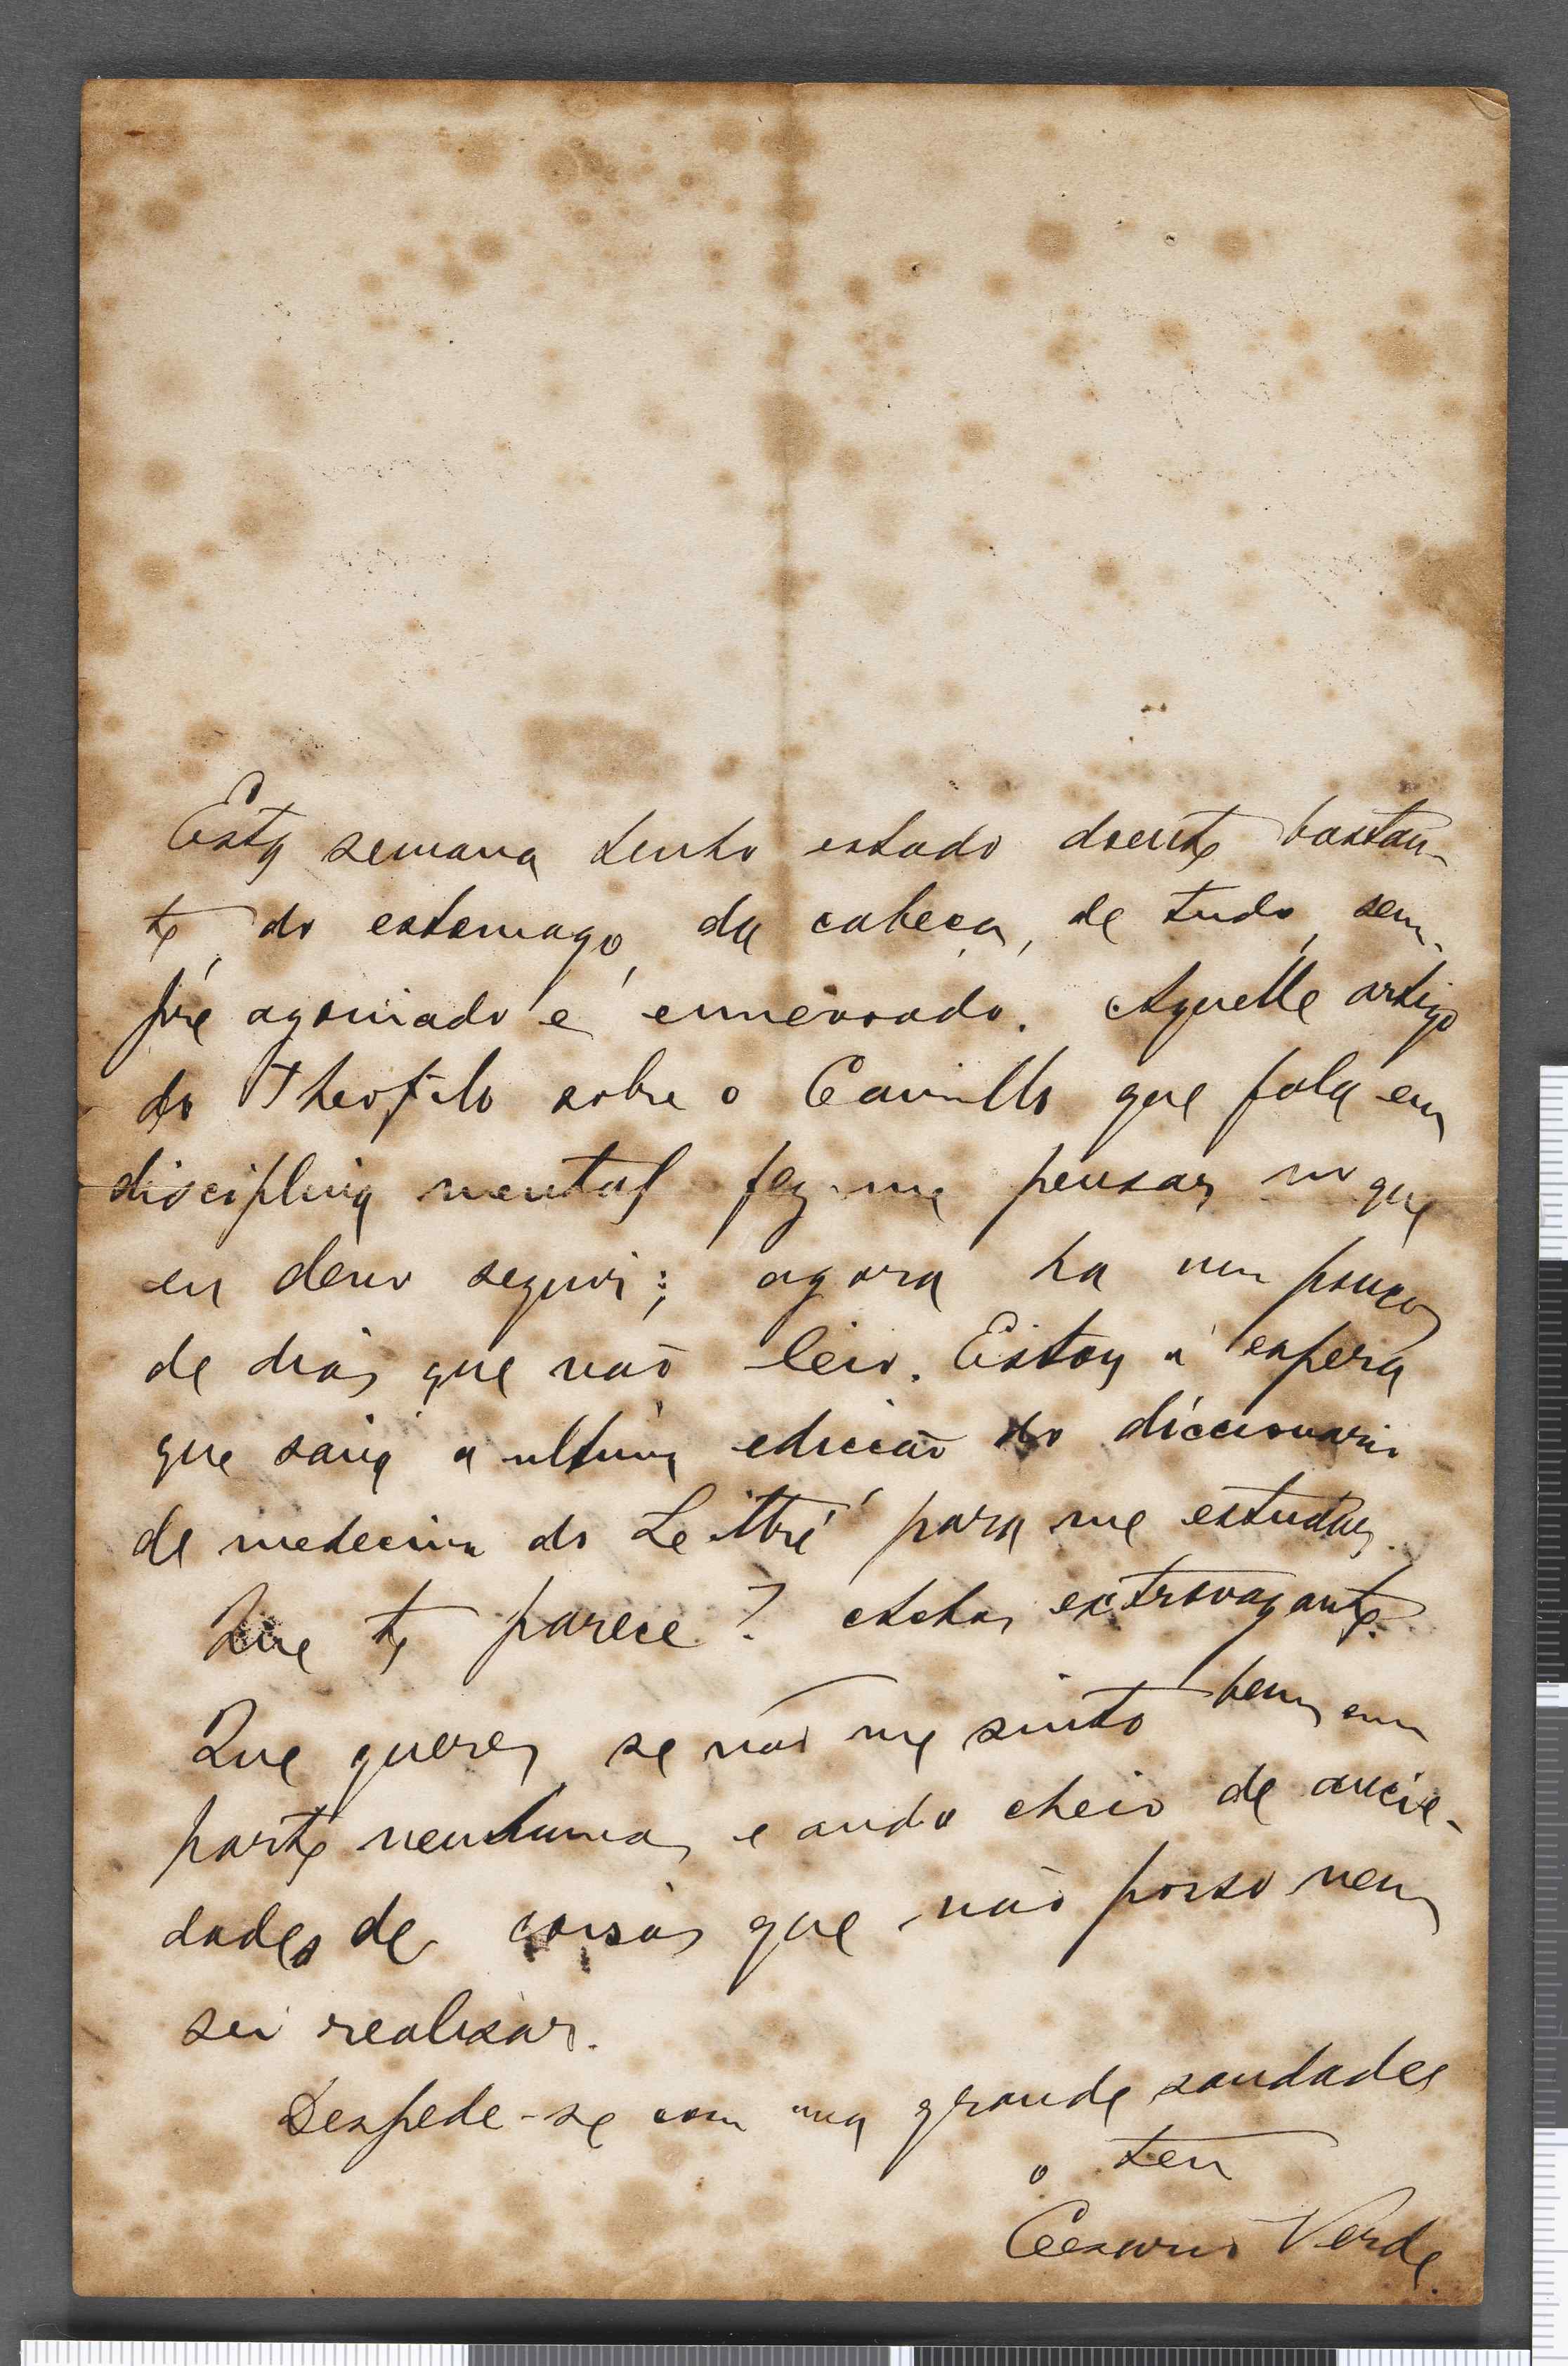 Esta semana tenho estado doente bastan-
te do estomago, da cabeça, de tudo, sem-
pre agoniado e ennervado. Aquelle artigo
do Theofilo sobre o Camillo que fala em
disciplina mental fez-me pensar no que
eu devo seguir; agora ha um poucos
de dias que não leio. Estou á espera
que saia a ultima edicção do diccionario
de medecina do Leittré para me estudar.
Que te parece? Achas extravagante?
Que queres, se não me sinto bem em
parte nenhuma, e ando cheio de ancie-
dades de coisas que não posso nem
sei realisar.
Despede-se com uma grande saudades
o teu
Cesario Verde.